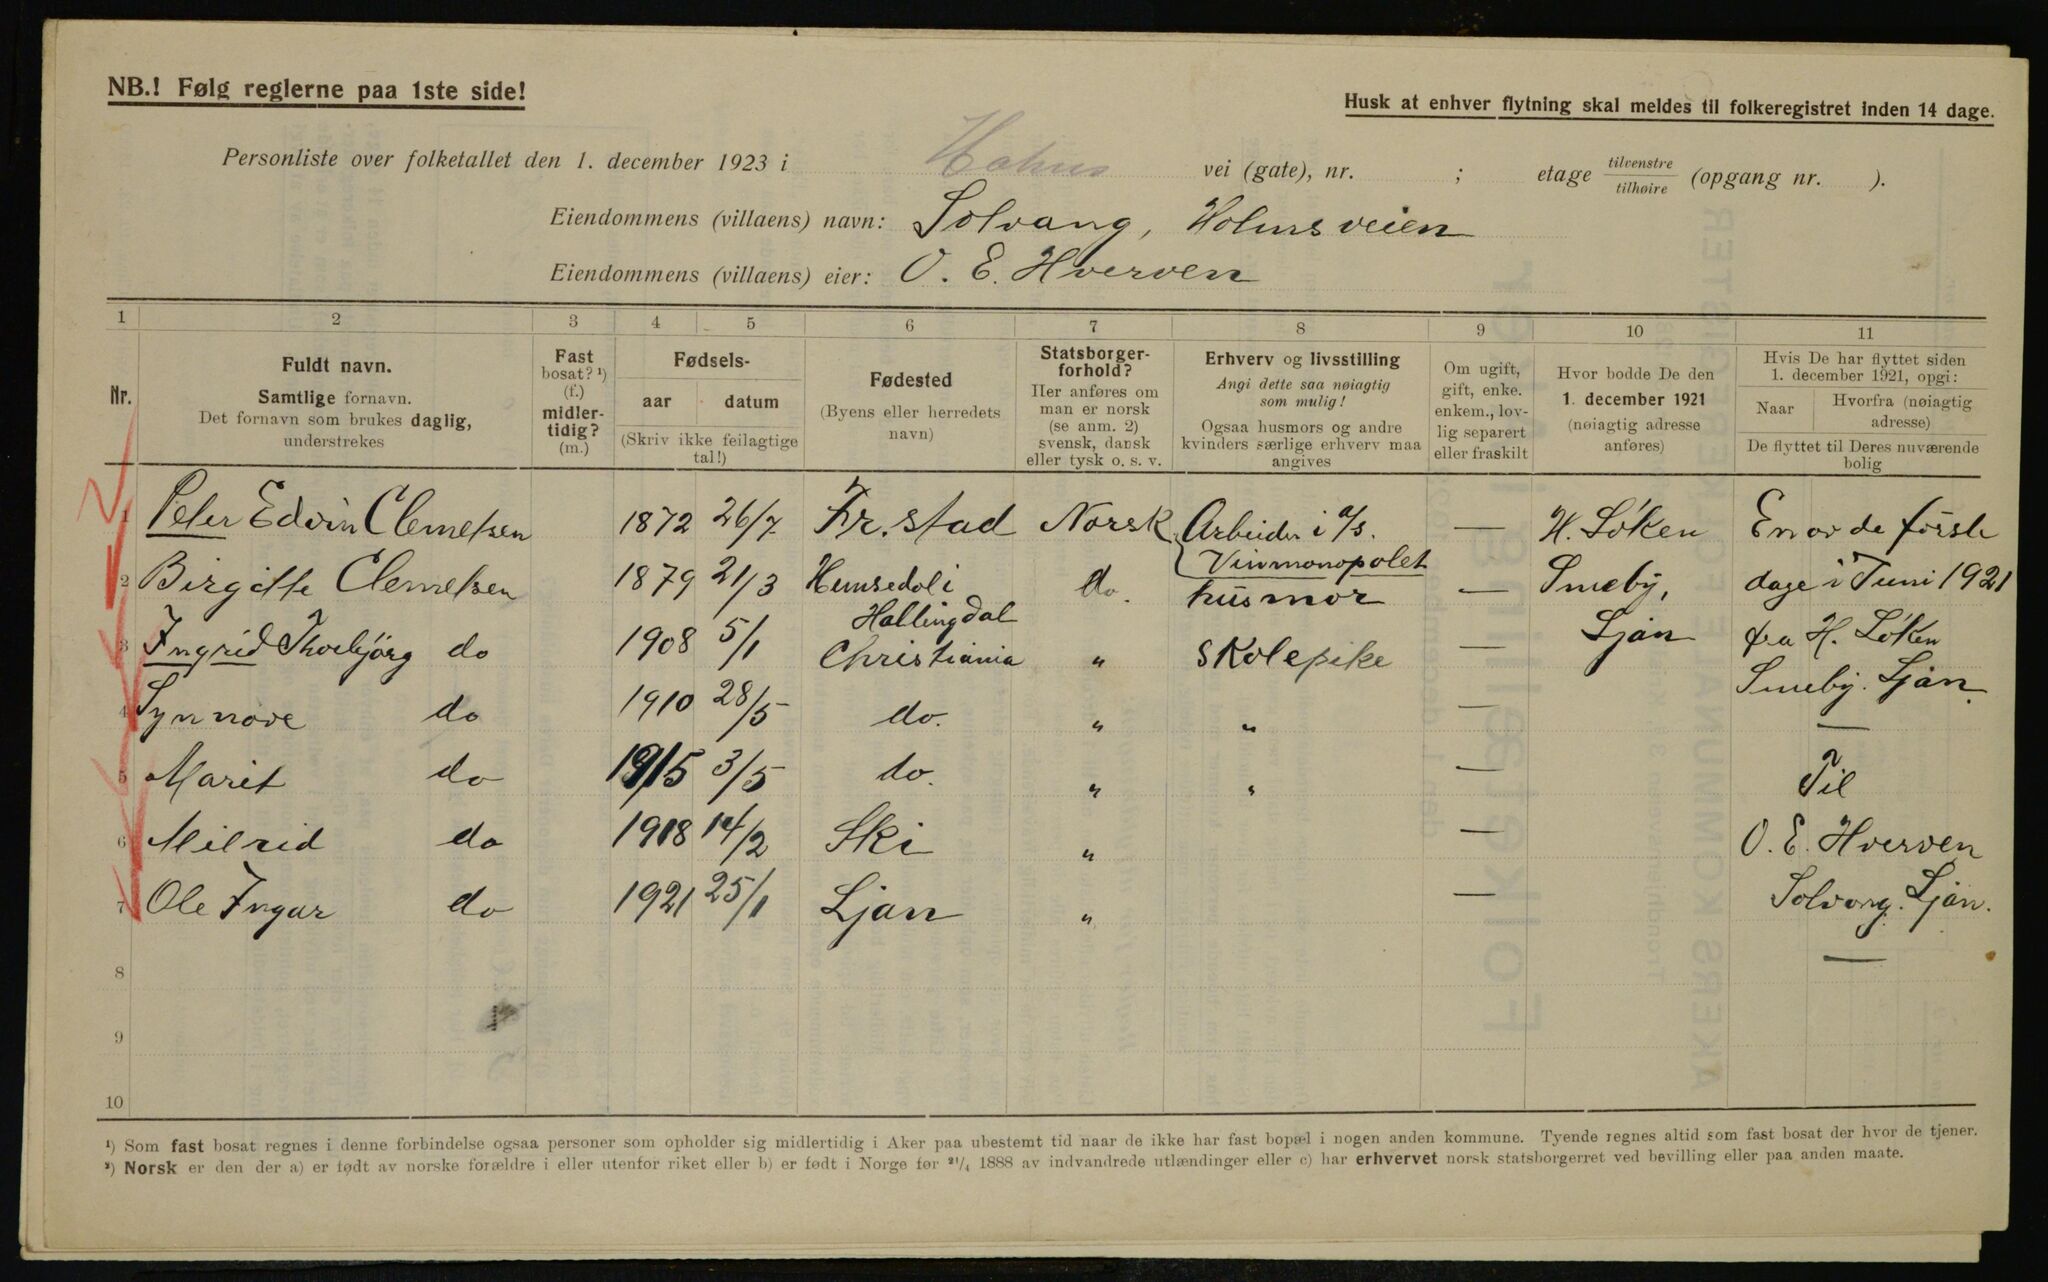 NB.! Følg reglerne paa 1ste side!
Husk at enhver flytning skal meldes til folkeregistret inden 14 dage.
Personliste over folketallet den 1. december 1923 i Holms vei (gate), nr. ; etage tilvenstre/tilhøire (opgang nr. ).
Eiendommens (villaens) navn: Solvang, Holmsveien
Eiendommens (villaens) eier: O. E. Hverven
1 2 3 4 5 6 7 8 9 10 11
Nr.
Fuldt navn.
Samtlige fornavn.
Det fornavn som brukes daglig,
understrekes
Fast
bosat? ¹)
(f.)
midler-
tidig?
(m.)
Fødsels-
aar datum
(Skriv ikke feilagtige
tal!)
Fødested
(Byens eller herredets
navn)
Statsborger-
forhold?
Her anføres om
man er norsk
(se anm. 2)
svensk, dansk
eller tysk o. s. v.
Erhverv og livsstilling
Angi dette saa nøiagtig
som mulig!
Ogsaa husmors og andre
kvinders særlige erhverv maa
angives
Om ugift,
gift, enke.
enkem., lov-
lig separert
eller fraskilt
Hvor bodde De den
1. december 1921
(nøiagtig adresse
anføres)
Hvis De har flyttet siden
1. december 1921, opgi:
Naar Hvorfra (nøiagtig
adresse)
De flyttet til Deres nuværende
bolig
1 Peter Edvin Clemetsen 1872 26/7 Fr.stad Norsk Arbeider i A/S. — H. Löken En av de første
Vinmonopolet
2 Birgitte Clemetsen 1879 21/3 Hemsedal i do. husmor — Smeby, dage i Juni 1921
Hallingdal
3 Ingrid Thorbjörg do 1908 5/1 Christiania " Skolepike — Ljan fra H. Löken
Smeby. Ljan.
4 Synnøve do 1910 28/5 do. " " — —
5 Marit do 1915 3/5 do. " " — Til
6 Milrid do 1918 14/2 Ski " — O. E. Hverven
7 Ole Ingar do 1921 25/1 Ljan " — Solvang. Ljan.
—
8
9
10
¹) Som fast bosat regnes i denne forbindelse ogsaa personer som opholder sig midlertidig i Aker paa ubestemt tid naar de ikke har fast bopæl i nogen anden kommune. Tyende regnes altid som fast bosat der hvor de tjener.
²) Norsk er den der a) er født av norske forældre i eller utenfor riket eller b) er født i Norge før ²¹/₄ 1888 av indvandrede utlændinger eller c) har erhvervet norsk statsborgerret ved bevilling eller paa anden maate.